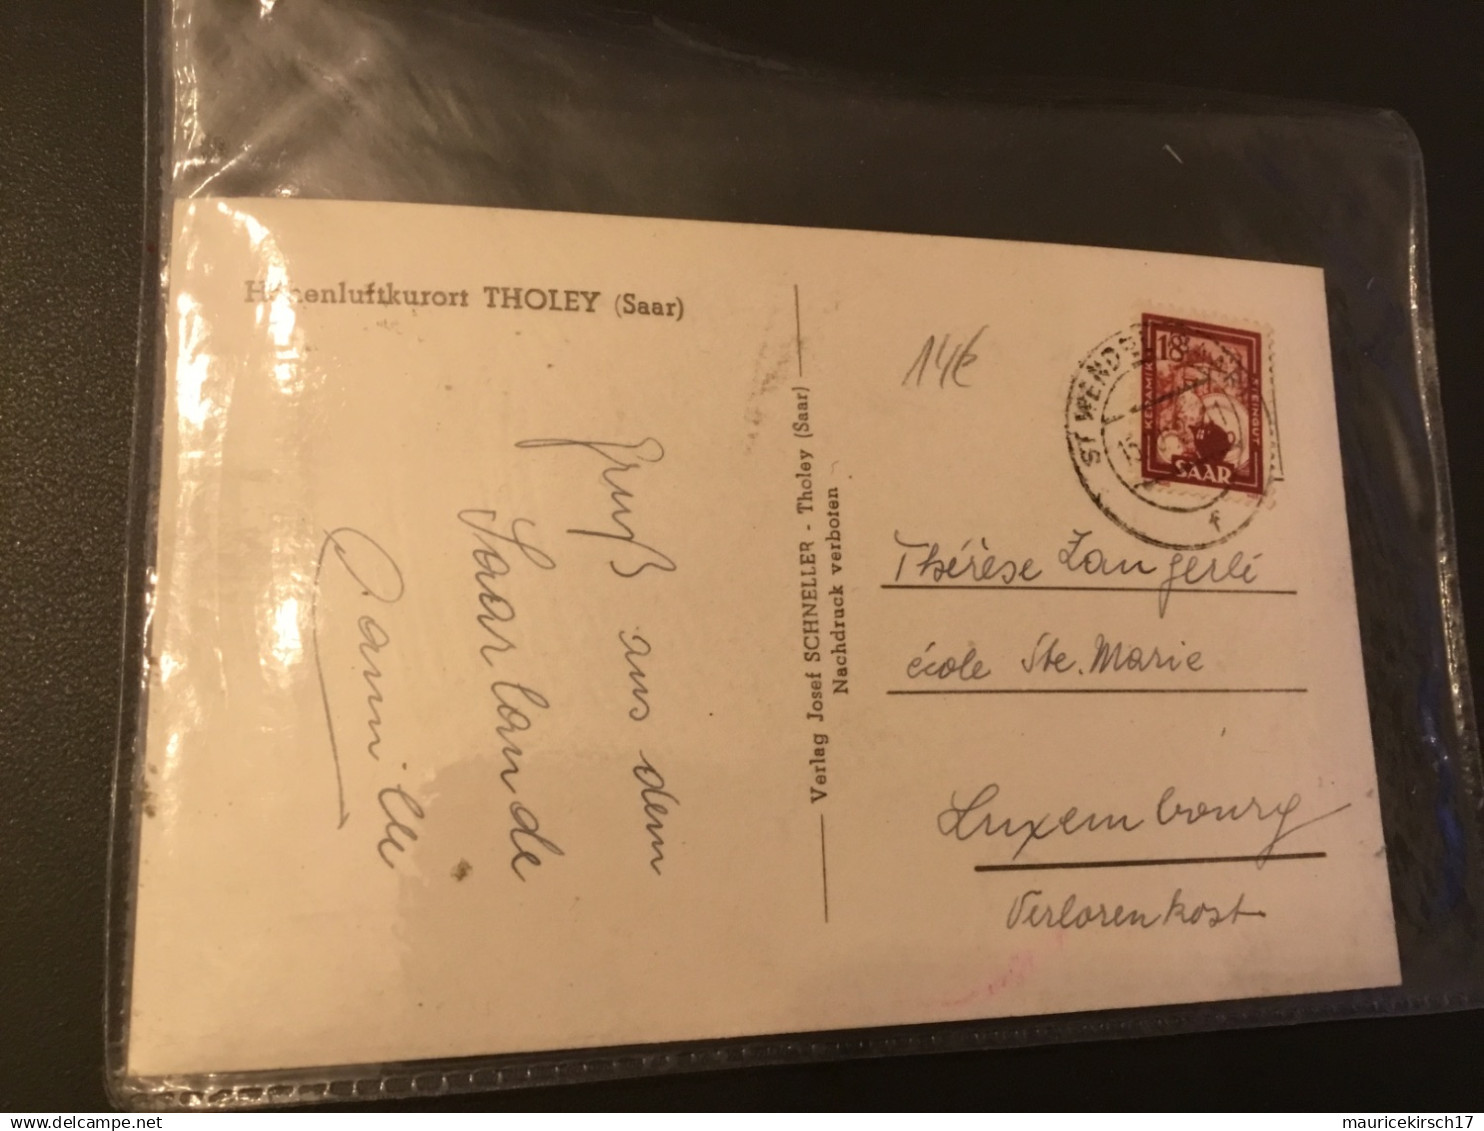 Höhenluftkurort THOLEY (Saar)
Gruß aus dem
Saarlande
Camille
Verlag Josef SCHNELLER - Tholey (Saar)
Nachdruck verboten
14€
ST WENDEL
18
KERAMIK
STEINGUT
SAAR
f
Thérèse Zangerlé
école Ste. Marie
Luxembourg
Verlorenkost
delcampe.net
mauricekirsch17